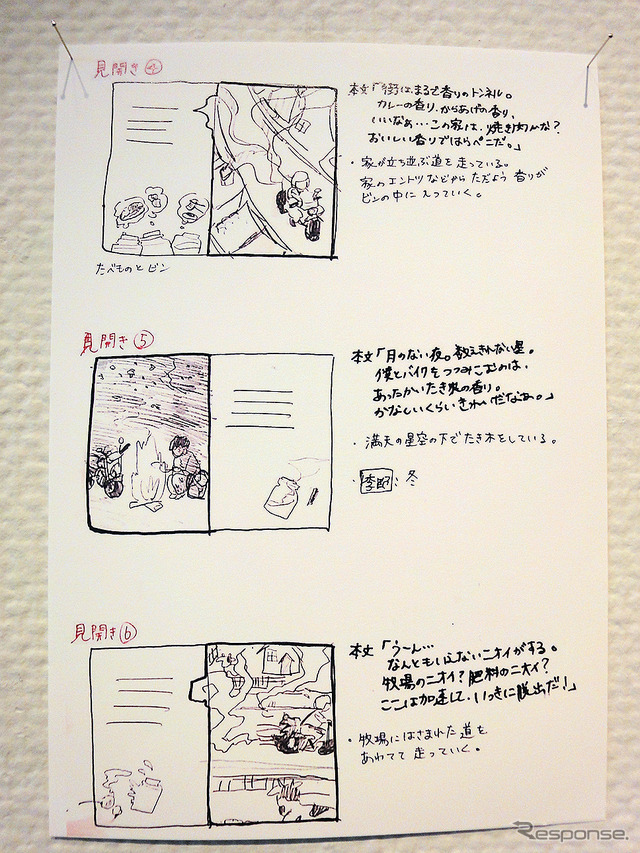 見開き④
本文「街は、まるで香りのトンネル。
カレーの香り、からあげの香り、
いいなぁ…この家は、焼き肉かな？
おいしい香りではらペコだ。」
・家が立ち並ぶ道を走っている。
家のエントツなどからただよう香りが
ビンの中に入っていく。
たべものとビン
見開き⑤
本文「月のない夜。数えきれない星。
僕とバイクをつつみこむのは、
あったかいたき火の香り。
かなしいくらいきれいだなぁ。」
・満天の星空の下でたき木をしている。
・季節：冬
見開き⑥
本文「うーん…
なんともいえないニオイがする。
牧場のニオイ？肥料のニオイ？
ここは加速して、いっきに脱出だ！」
・牧場にはさまれた道を
あわてて走っていく。
Response.